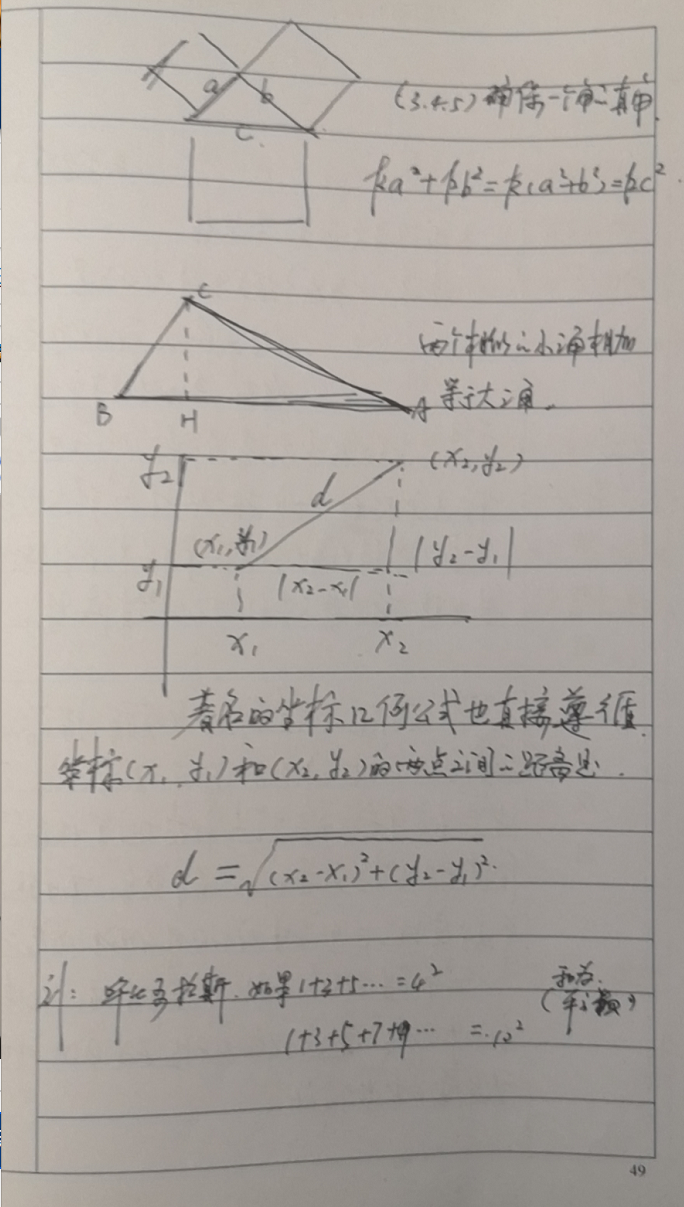 a b
c
(3.4.5) 确保一个角是直角.
ka²+kb²=k(a²+b²)=kc².
C
两个相似小三角相加
等于大三角.
B H A
y₂ (x₂,y₂)
d
(x₁,y₁) |y₂-y₁|
y₁ |x₂-x₁|
x₁ x₂
著名的坐标几何公式也直接遵循.
坐标(x₁ y₁)和(x₂,y₂)的两点之间距离是.
d=√(x₂-x₁)²+(y₂-y₁)².
注: 毕达哥拉斯. 如果1+3+5…=4² 和为.
1+3+5+7+9… =
49